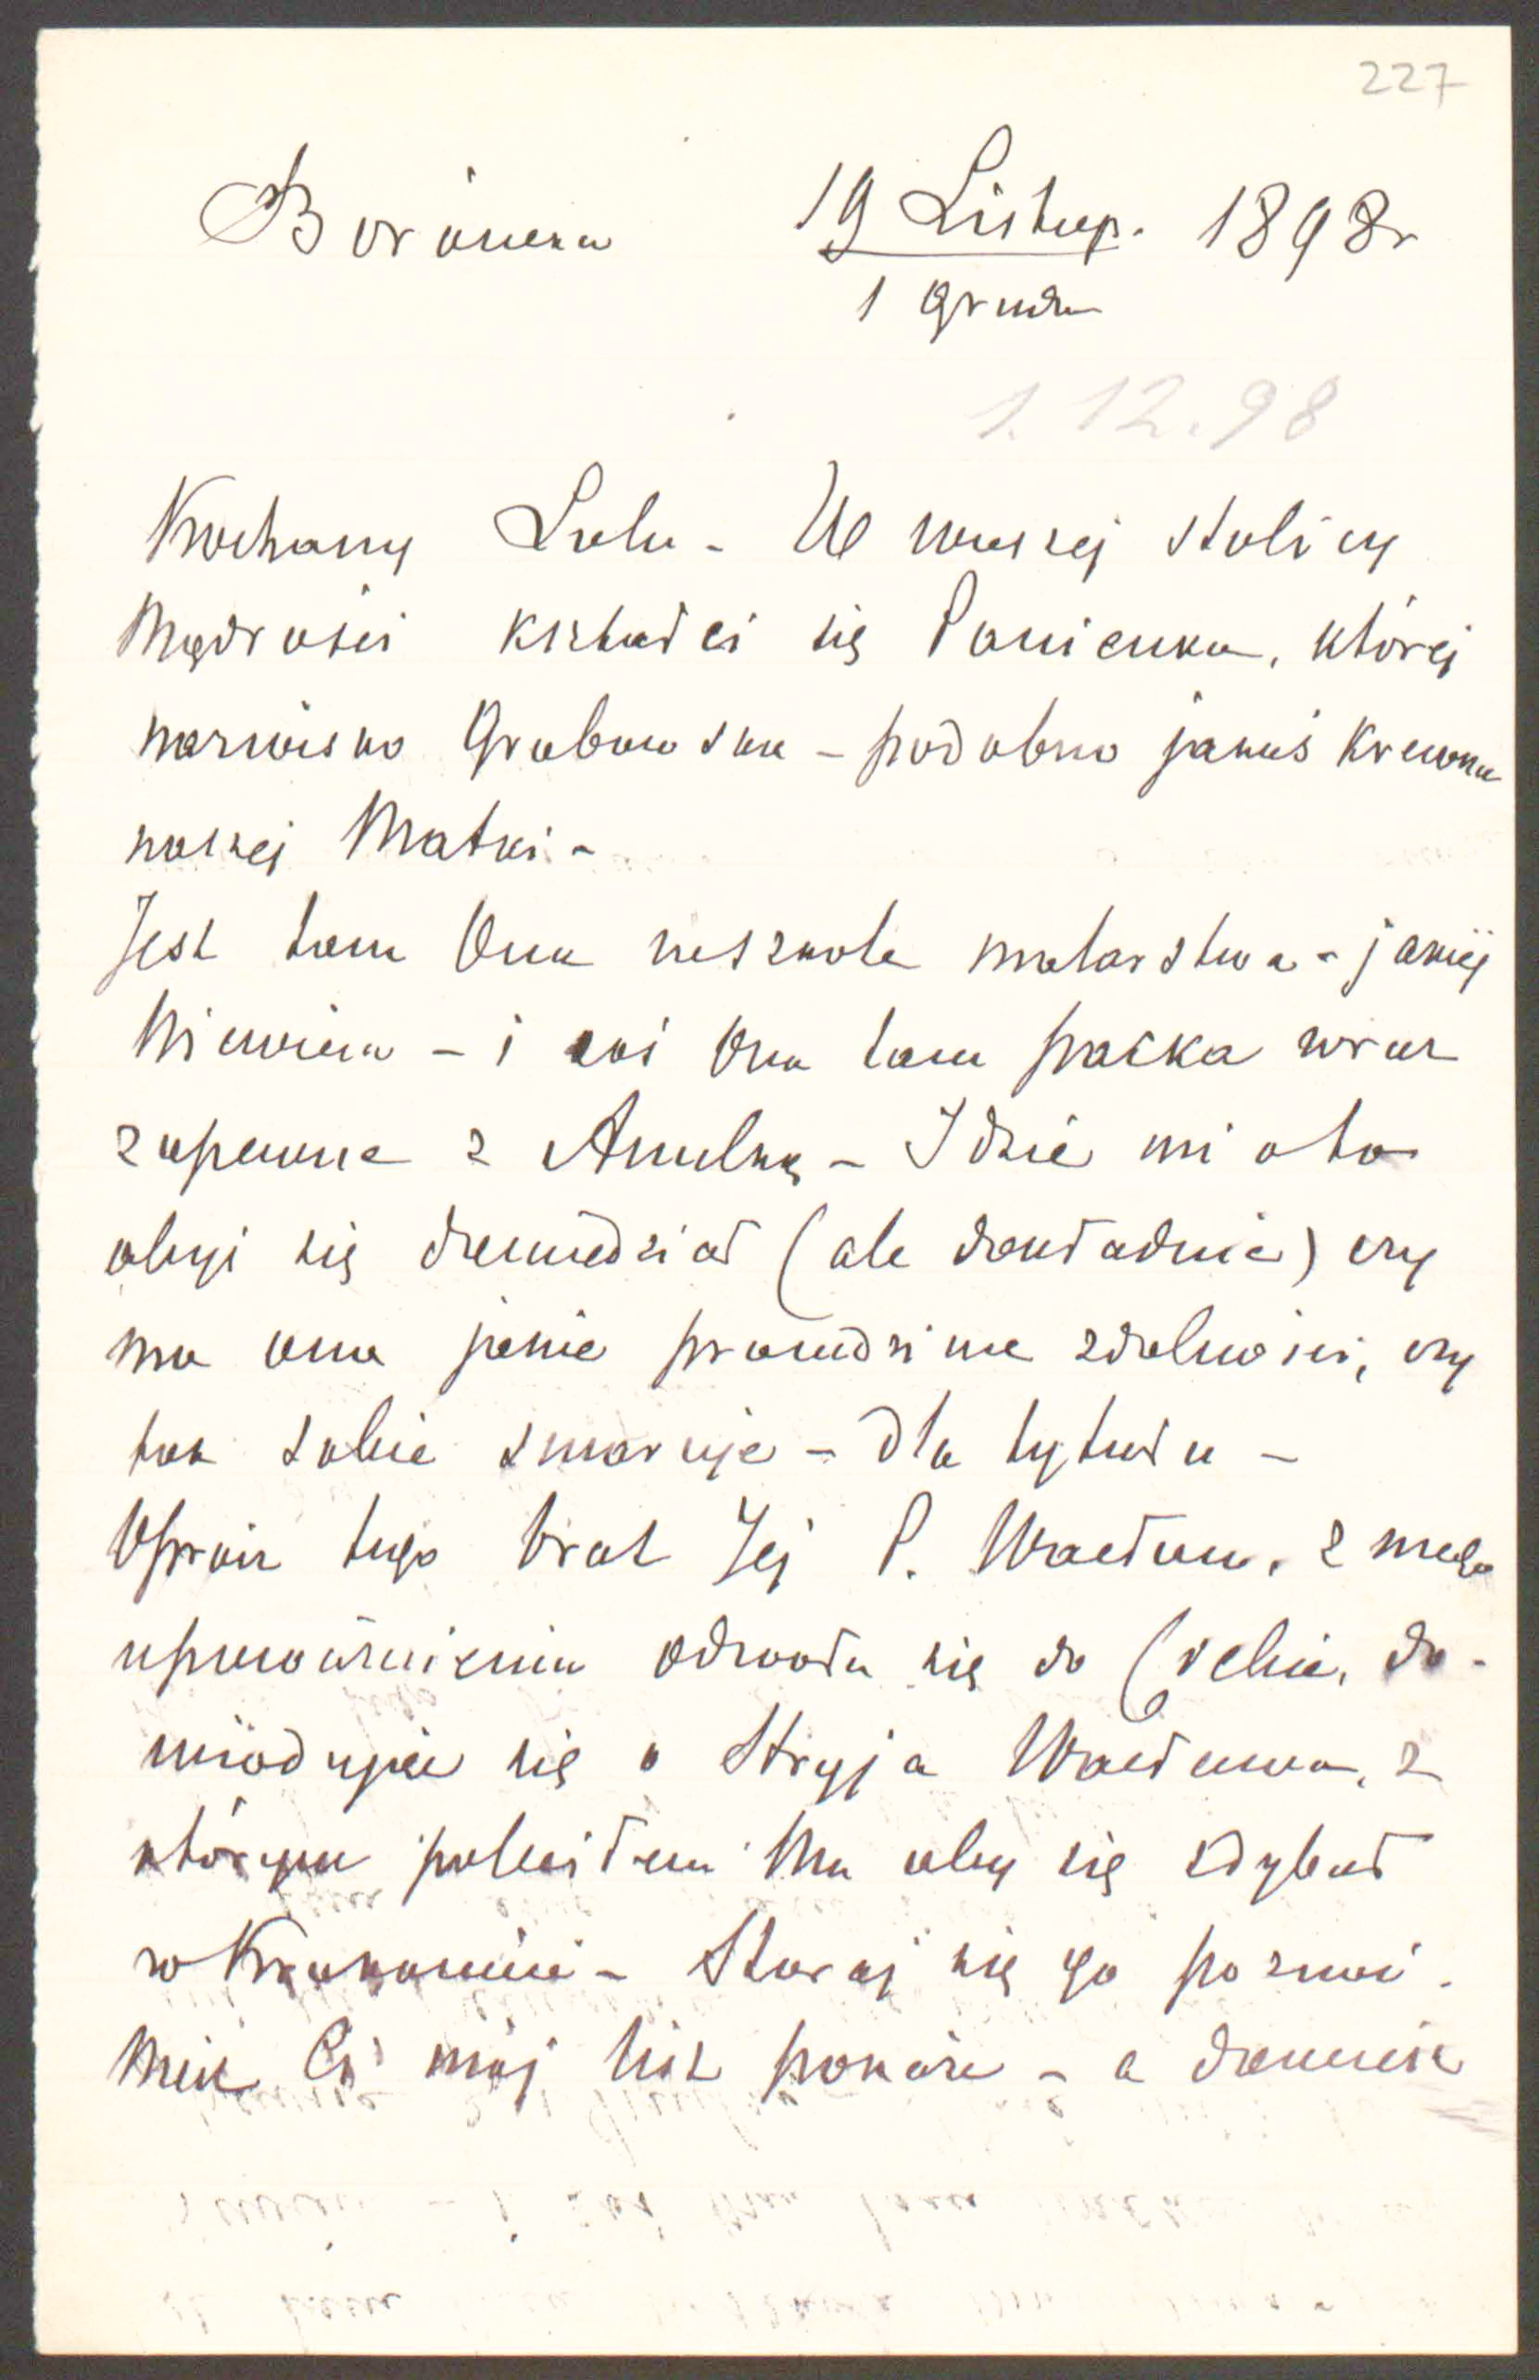 227
Borówka 19 Listop. 1898r
1 Grudn
1.12.98
Kochany Lulu - W waszej stolicy
Mądrości kształci się Panienka, której
nazwisko Grabowska - podobno jakaś krewna
naszej Matki -
Jest tam Ona w szkole malarstwa - jakiej
Niewiem - i coś Ona tam paćka wraz
zapewne z Anulką - Idzie mi oto
abyś się dowiedział (ale dokładnie) czy
ma ona jakie prawdziwe zdolności, czy
tak sobie smaruje - dla tytułu -
Oprócz tego brat Jej P. Wacław, z mego
upoważnienia odwoła się do Ciebie, do-
wiadując się o Stryja Wacława, z
którym poleciłem Mu aby się zdybał
w Krakowie - Staraj się go poznać.
Niech Ci mój list pokaże - a